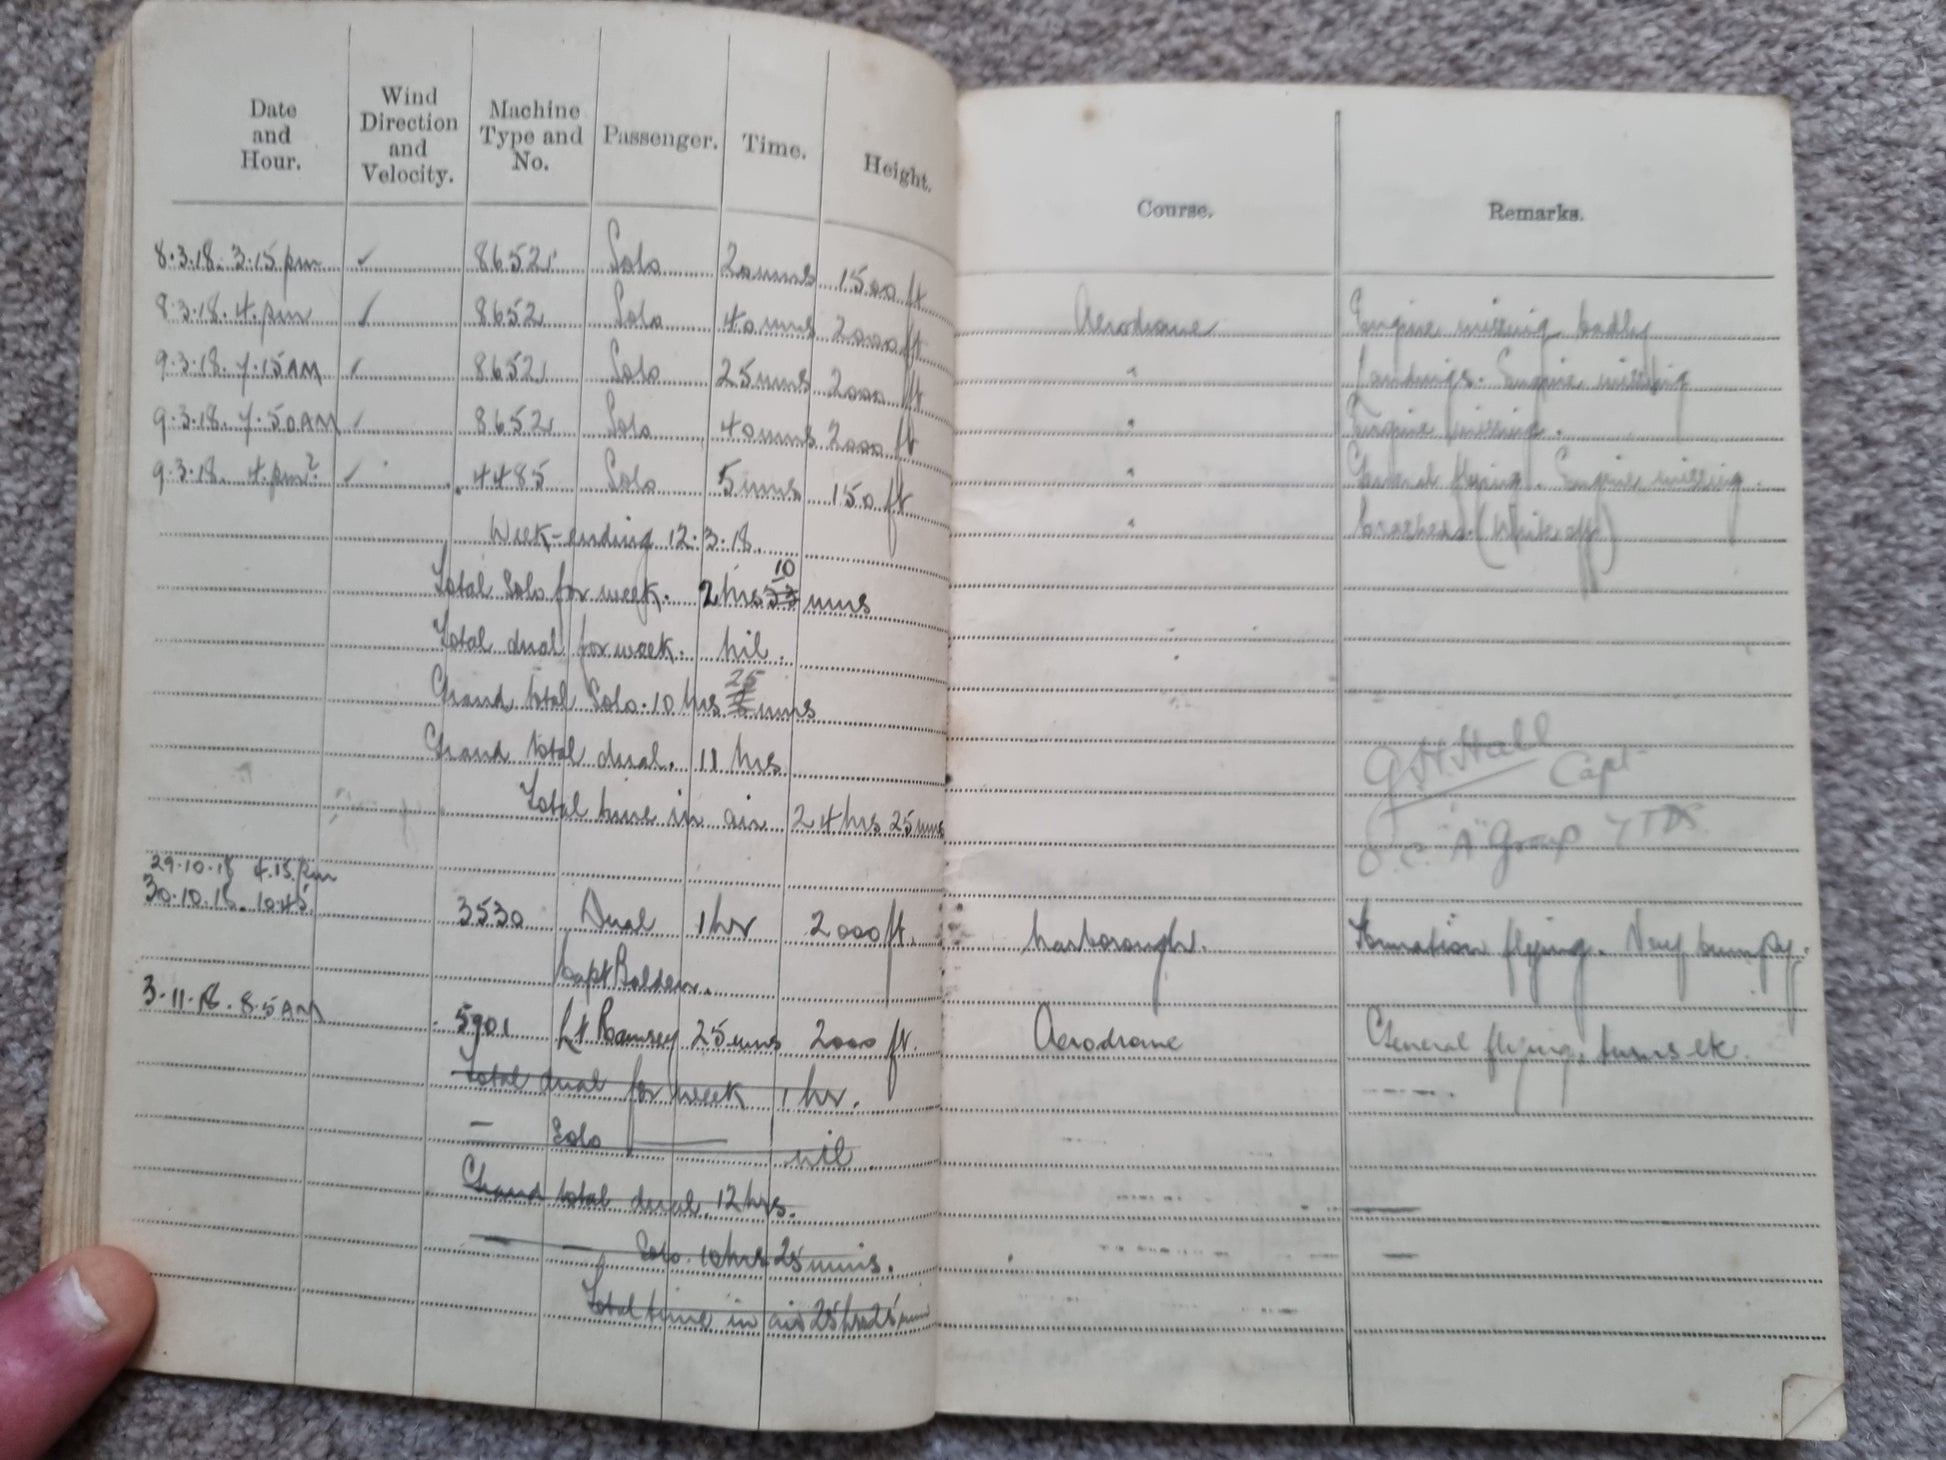 Date and Hour. Wind Direction and Velocity. Machine Type and No. Passenger. Time. Height. Course. Remarks.
8.3.18. 3.15 pm 8652 Solo 20 mins 1500 ft Aerodrome Engine missing badly
8.3.18. 4. pm 8652 Solo 40 mins 2000 ft " Landings. Engine missing
9.3.18. 7.15 AM 8652 Solo 25 mins 2000 ft " Engine missing.
9.3.18. 7.50 AM 8652 Solo 40 mins 2000 ft " General flying. Engine missing.
9.3.18. 4. pm? 4485 Solo 5 mins 150 ft " Crashed. (Write off)
Week-ending 12.3.18.
10
Total Solo for week. 2 hrs mins
Total dual for week. nil.
25
Grand total Solo. 10 hrs mins
Grand total dual. 11 hrs
G H Hall Capt
Total time in air 24 hrs 25 mins
O.C. "A" Group 7 TDS
29.10.18 4.15. pm
30.10.18. 10.45. 3530 Dual 1 hr 2000 ft. Harborough. Formation flying. Very bumpy.
Capt Balden.
3.11.18. 8.5 AM 5901 Lt Ramsey 25 mins 2000 ft. Aerodrome General flying, turns etc.
Total dual for week 1 hr.
— Solo — nil
Grand total dual. 12 hrs.
— — Solo. 10 hrs 25 mins.
Total time in air 25 hrs 25 min